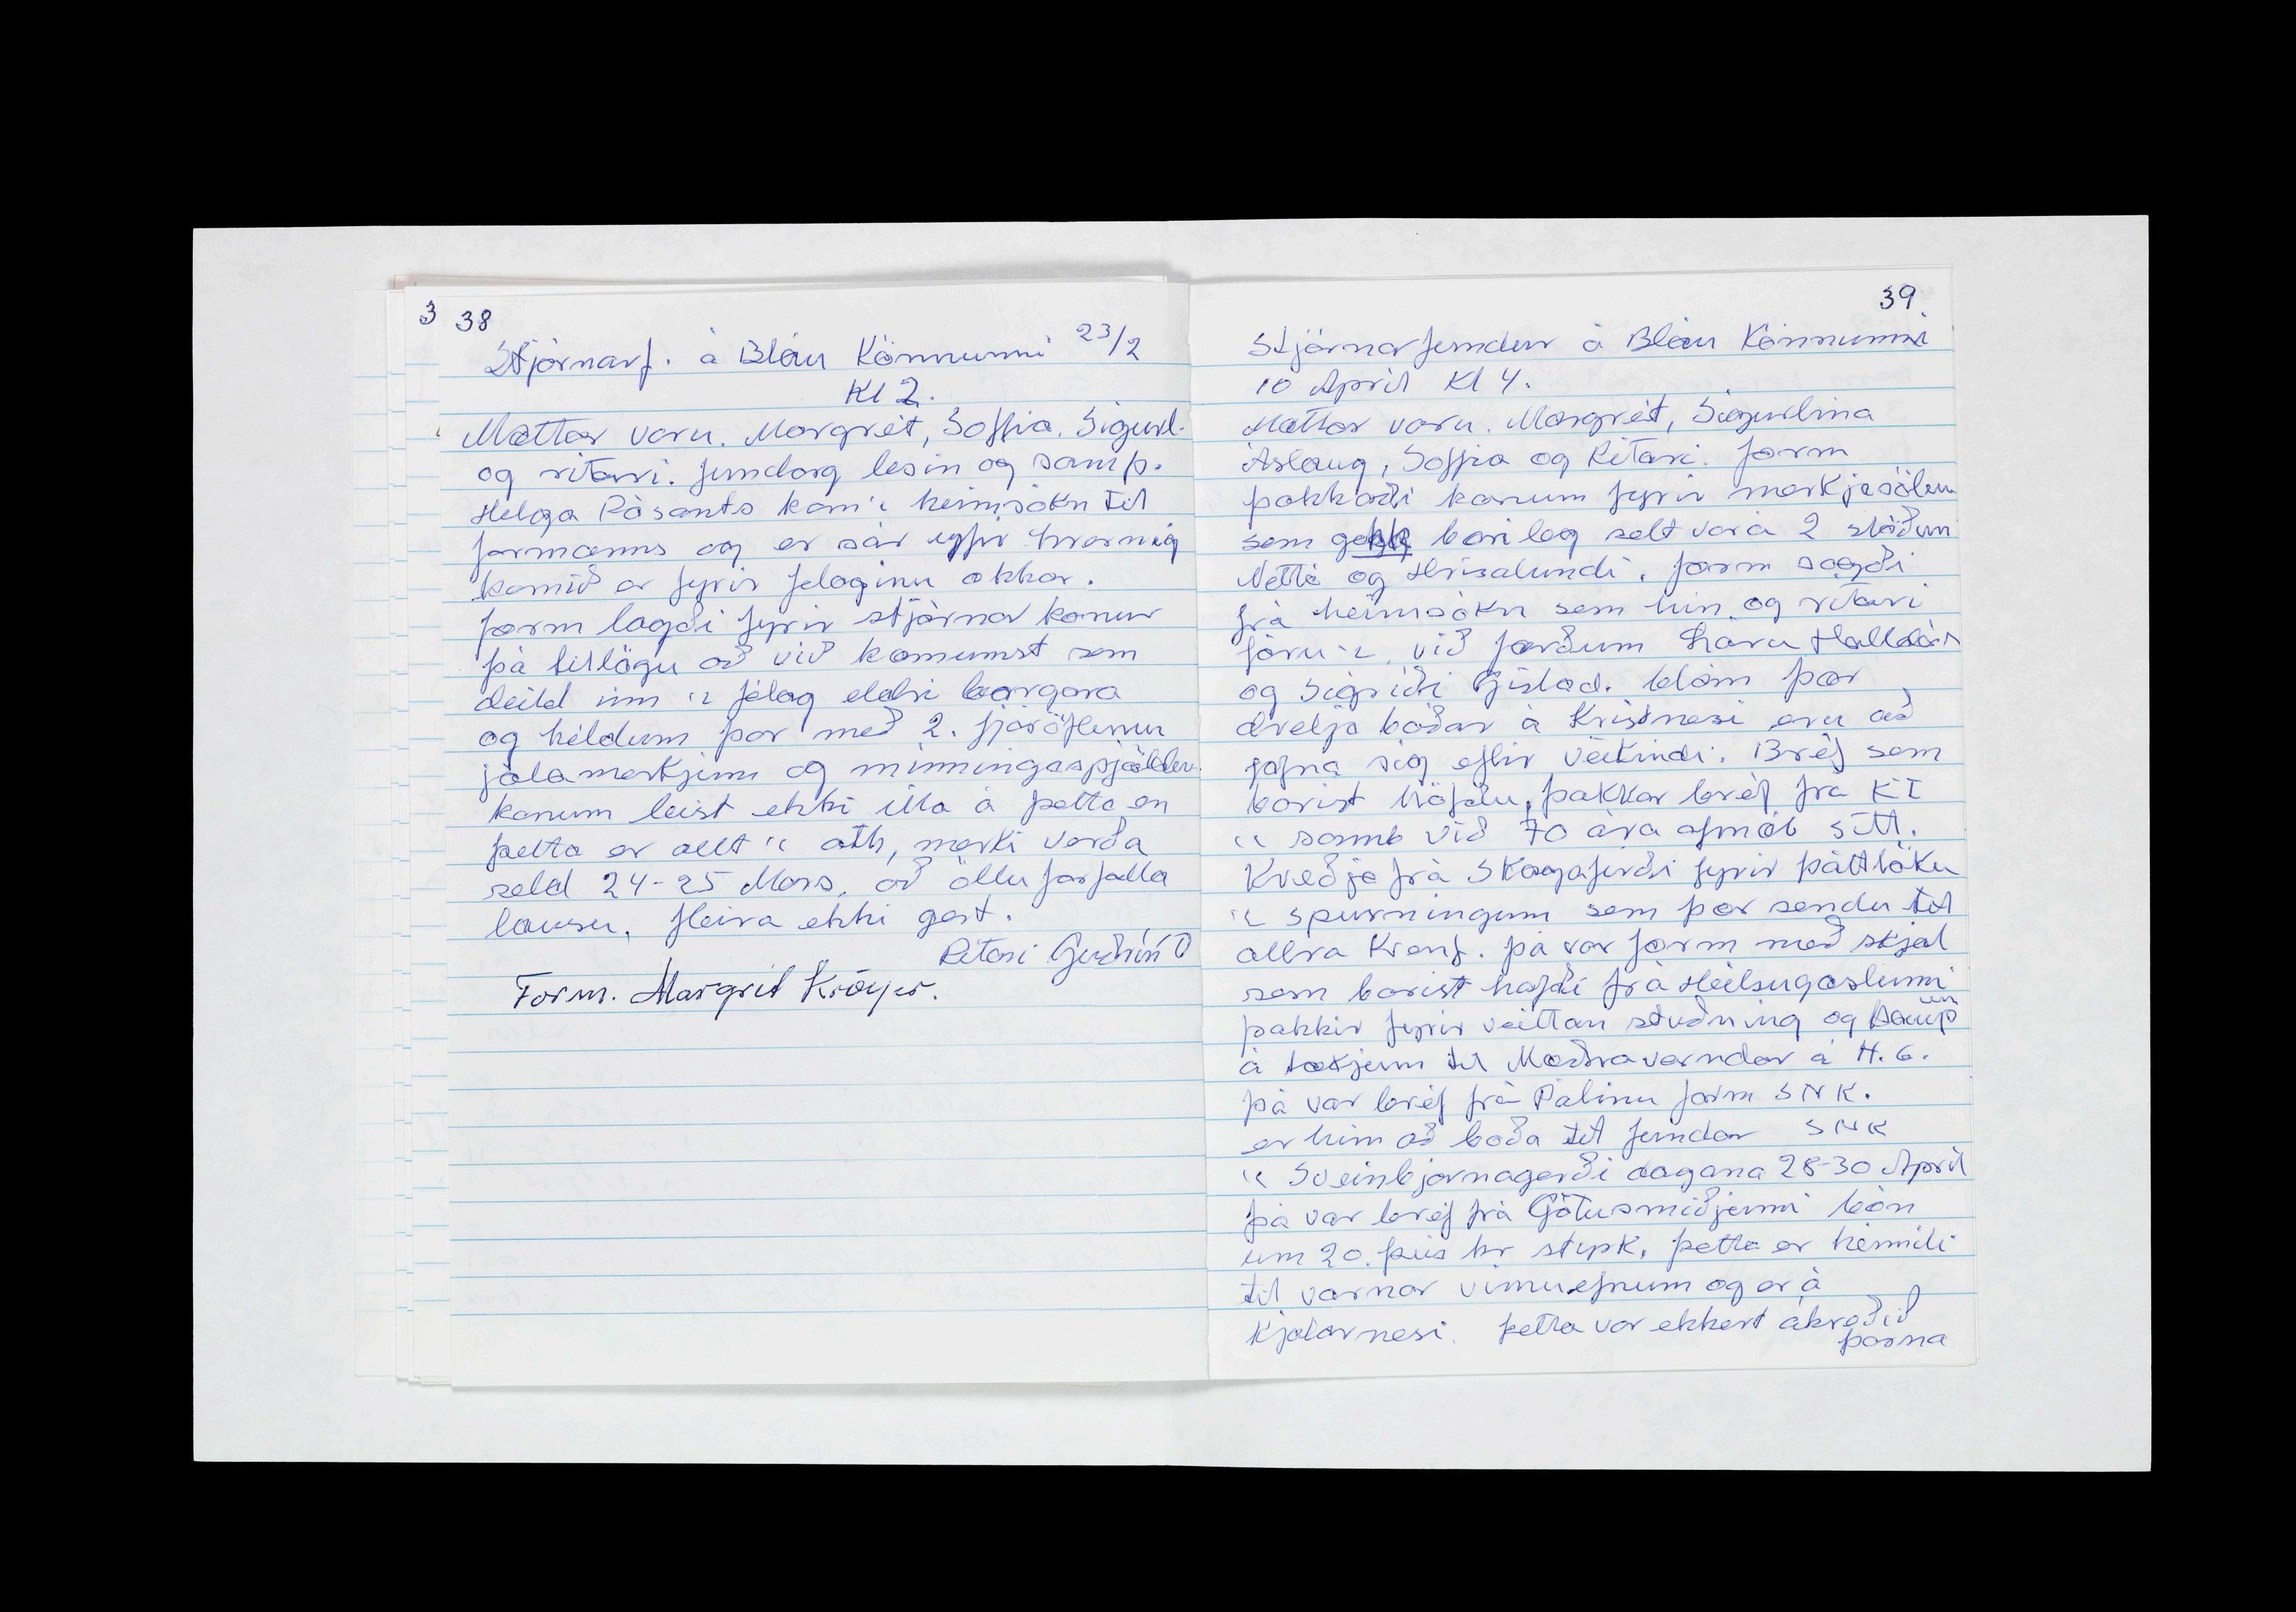 3 38
Stjórnarf. á Bláu Könnunni 23/2
Kl 2.
Mættar voru. Margrét, Soffia. Sigurl.
og ritari. fundarg lesin og samþ.
Helga Pásants kom í heimsókn til
formanns og er sár yfir hvernig
komið er fyrir felaginu okkar.
form lagði fyrir stjórnar konur
þá tillögu að við komumst sem
deild inn í félag eldri borgara
og héldum þar með 2. fjáröflunum
jólamerkjum og minningaspjöldum
konum leist ekki illa á þetta en
þetta er allt í ath, merki verða
seld 24-25 Mars. að öllu forfalla
lausu. fleira ekki gert.
Ritari Guðrún O
Form. Margrét Kröyer.
39
Stjórnarfundur á Bláu Könnunni
10 April Kl 4.
Mættar voru. Margrét, Sigurlina
Áslaug, Soffia og Ritari. form
þakkaði konum fyrir merkjasölu
sem gekk bærileg selt var á 2 stöðum
Nettó og Hrísalundi. form sagði
frá heimsókn sem hún og ritari
fóru í, við færðum Láru Halldórs
og Sigríði Gíslad. blóm þær
dvelja báðar á Kristnesi eru að
jafna sig eftir veikindi. Bréf sem
borist höfðu, þakkar bréf frá KÍ
í samb við 70 ára afmæli sitt.
Kveðja frá Skagafirði fyrir þátttöku
í spurningum sem þær sendu til
allra Kvenf. þá var form með skjal
sem borist hafði frá Heilsugæslunni
þakkir fyrir veittan stuðning og kaup
á tækjum til Mæðraverndar á H.G.
þá var bréf frá Pálínu form SNK.
er hún að boða til fundar SNK
í Sveinbjarnagerði dagana 28-30 April
þá var bréf frá Götusmiðjunni bón
um 20. þús kr styrk. þetta er heimili
til varnar vímuefnum og er á
Kjalarnesi. þetta var ekkert ákveðið
þarna